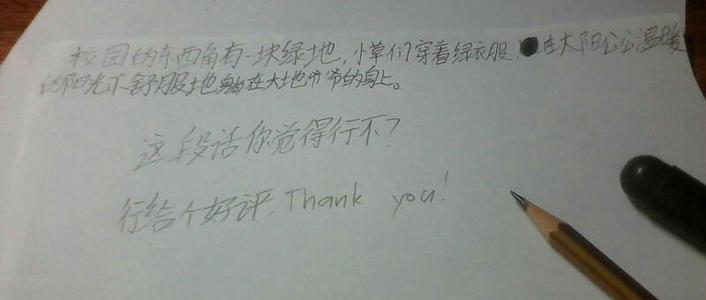 校园的东西角有一块绿地,小草们穿着绿衣服,在太阳公公温暖
的阳光下舒服地躺在大地爷爷的身上。
这段话你觉得行不?
行给个好评.Thank you!